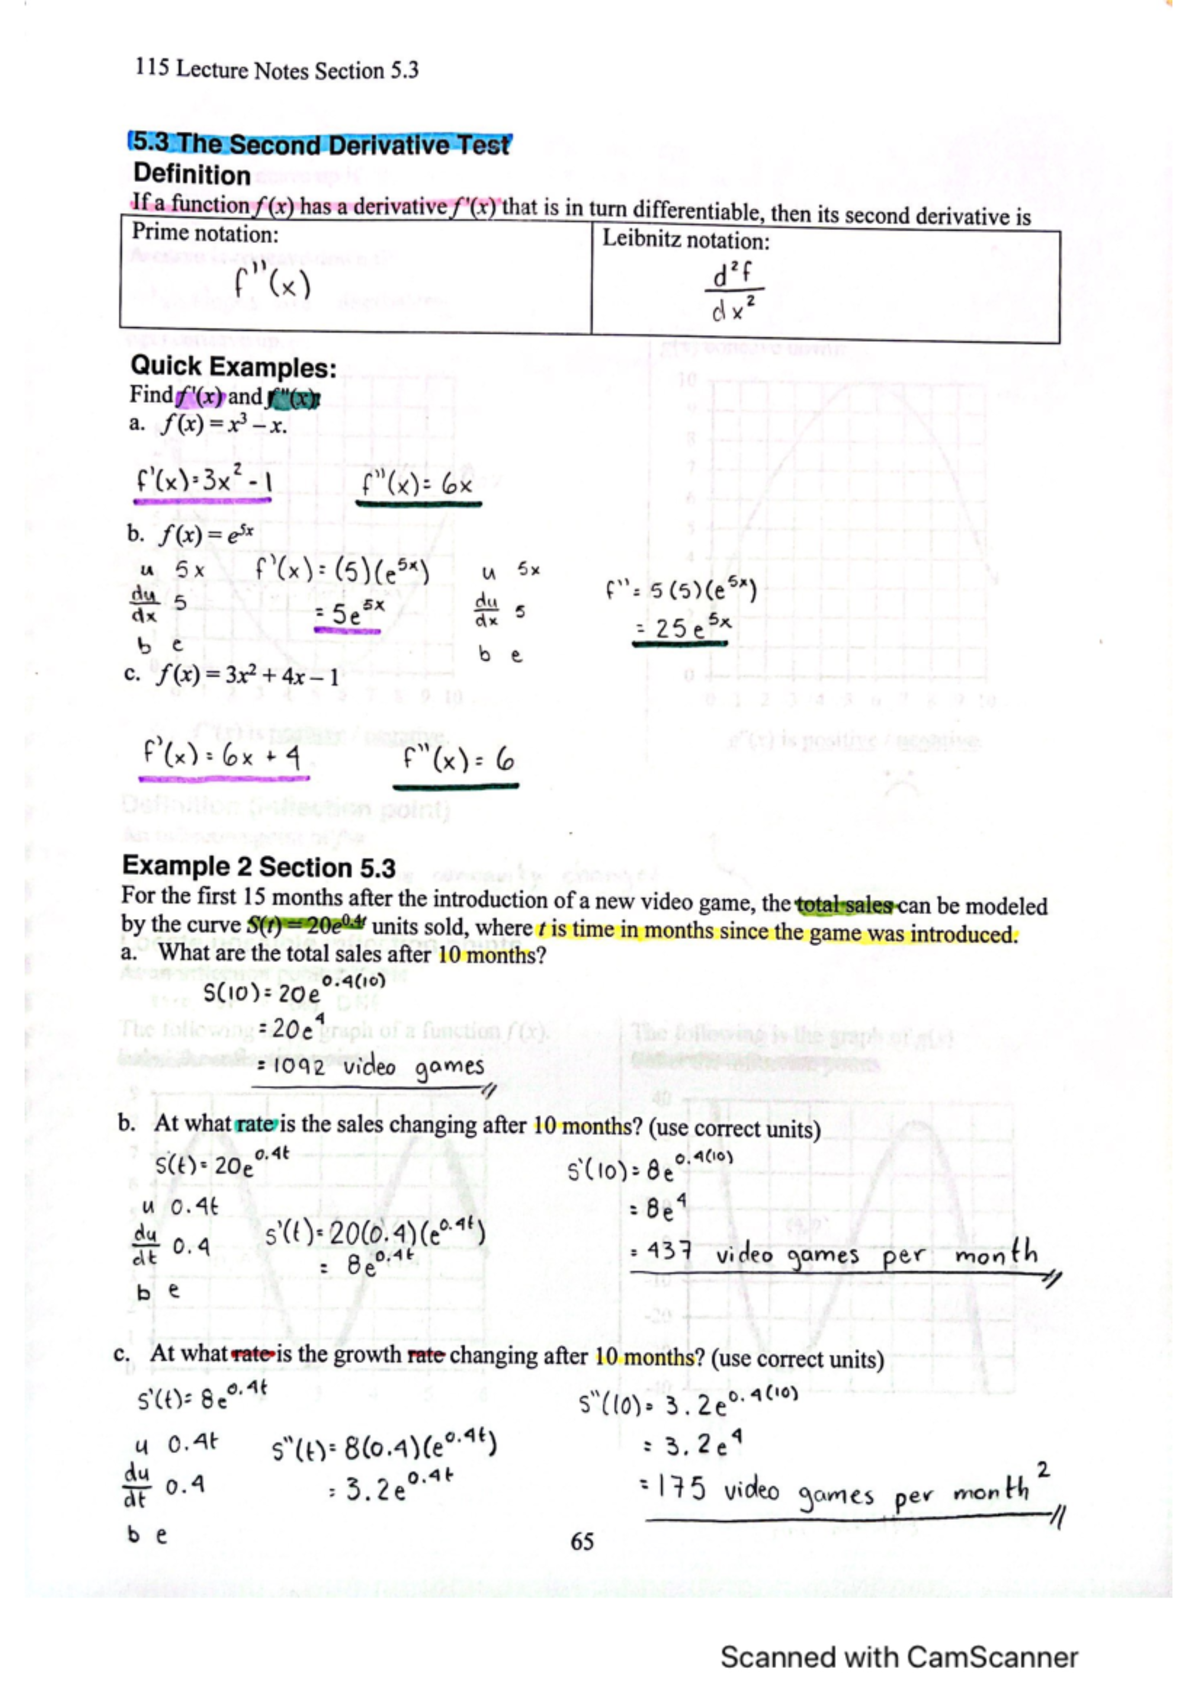 115 Lecture Notes Section 5.3
5.3 The Second Derivative Test
Definition
If a function f(x) has a derivative f'(x) that is in turn differentiable, then its second derivative is
Prime notation:
Leibnitz notation:
f''(x)
d²f
dx²
Quick Examples:
Find f'(x) and f''(x)
a. f(x) = x³ – x.
f'(x) = 3x² - 1
f''(x) = 6x
b. f(x) = e⁵ˣ
u 5x
f'(x) = (5)(e⁵ˣ)
u 5x
f'' = 5(5)(e⁵ˣ)
du/dx 5
= 5e⁵ˣ
du/dx 5
= 25e⁵ˣ
b e
b e
c. f(x) = 3x² + 4x – 1
f'(x) = 6x + 4
f''(x) = 6
Example 2 Section 5.3
For the first 15 months after the introduction of a new video game, the total sales can be modeled
by the curve S(t) = 20e^0.4t units sold, where t is time in months since the game was introduced.
a. What are the total sales after 10 months?
S(10) = 20e^0.4(10)
= 20e⁴
= 1092 video games
b. At what rate is the sales changing after 10 months? (use correct units)
S(t) = 20e^0.4t
S'(10) = 8e^0.4(10)
u 0.4t
= 8e⁴
du/dt 0.4
S'(t) = 20(0.4)(e^0.4t)
= 8e^0.4t
= 437 video games per month
b e
c. At what rate is the growth rate changing after 10 months? (use correct units)
S'(t) = 8e^0.4t
S''(10) = 3.2e^0.4(10)
u 0.4t
S''(t) = 8(0.4)(e^0.4t)
= 3.2e⁴
du/dt 0.4
= 3.2e^0.4t
= 175 video games per month²
b e
65
Scanned with CamScanner